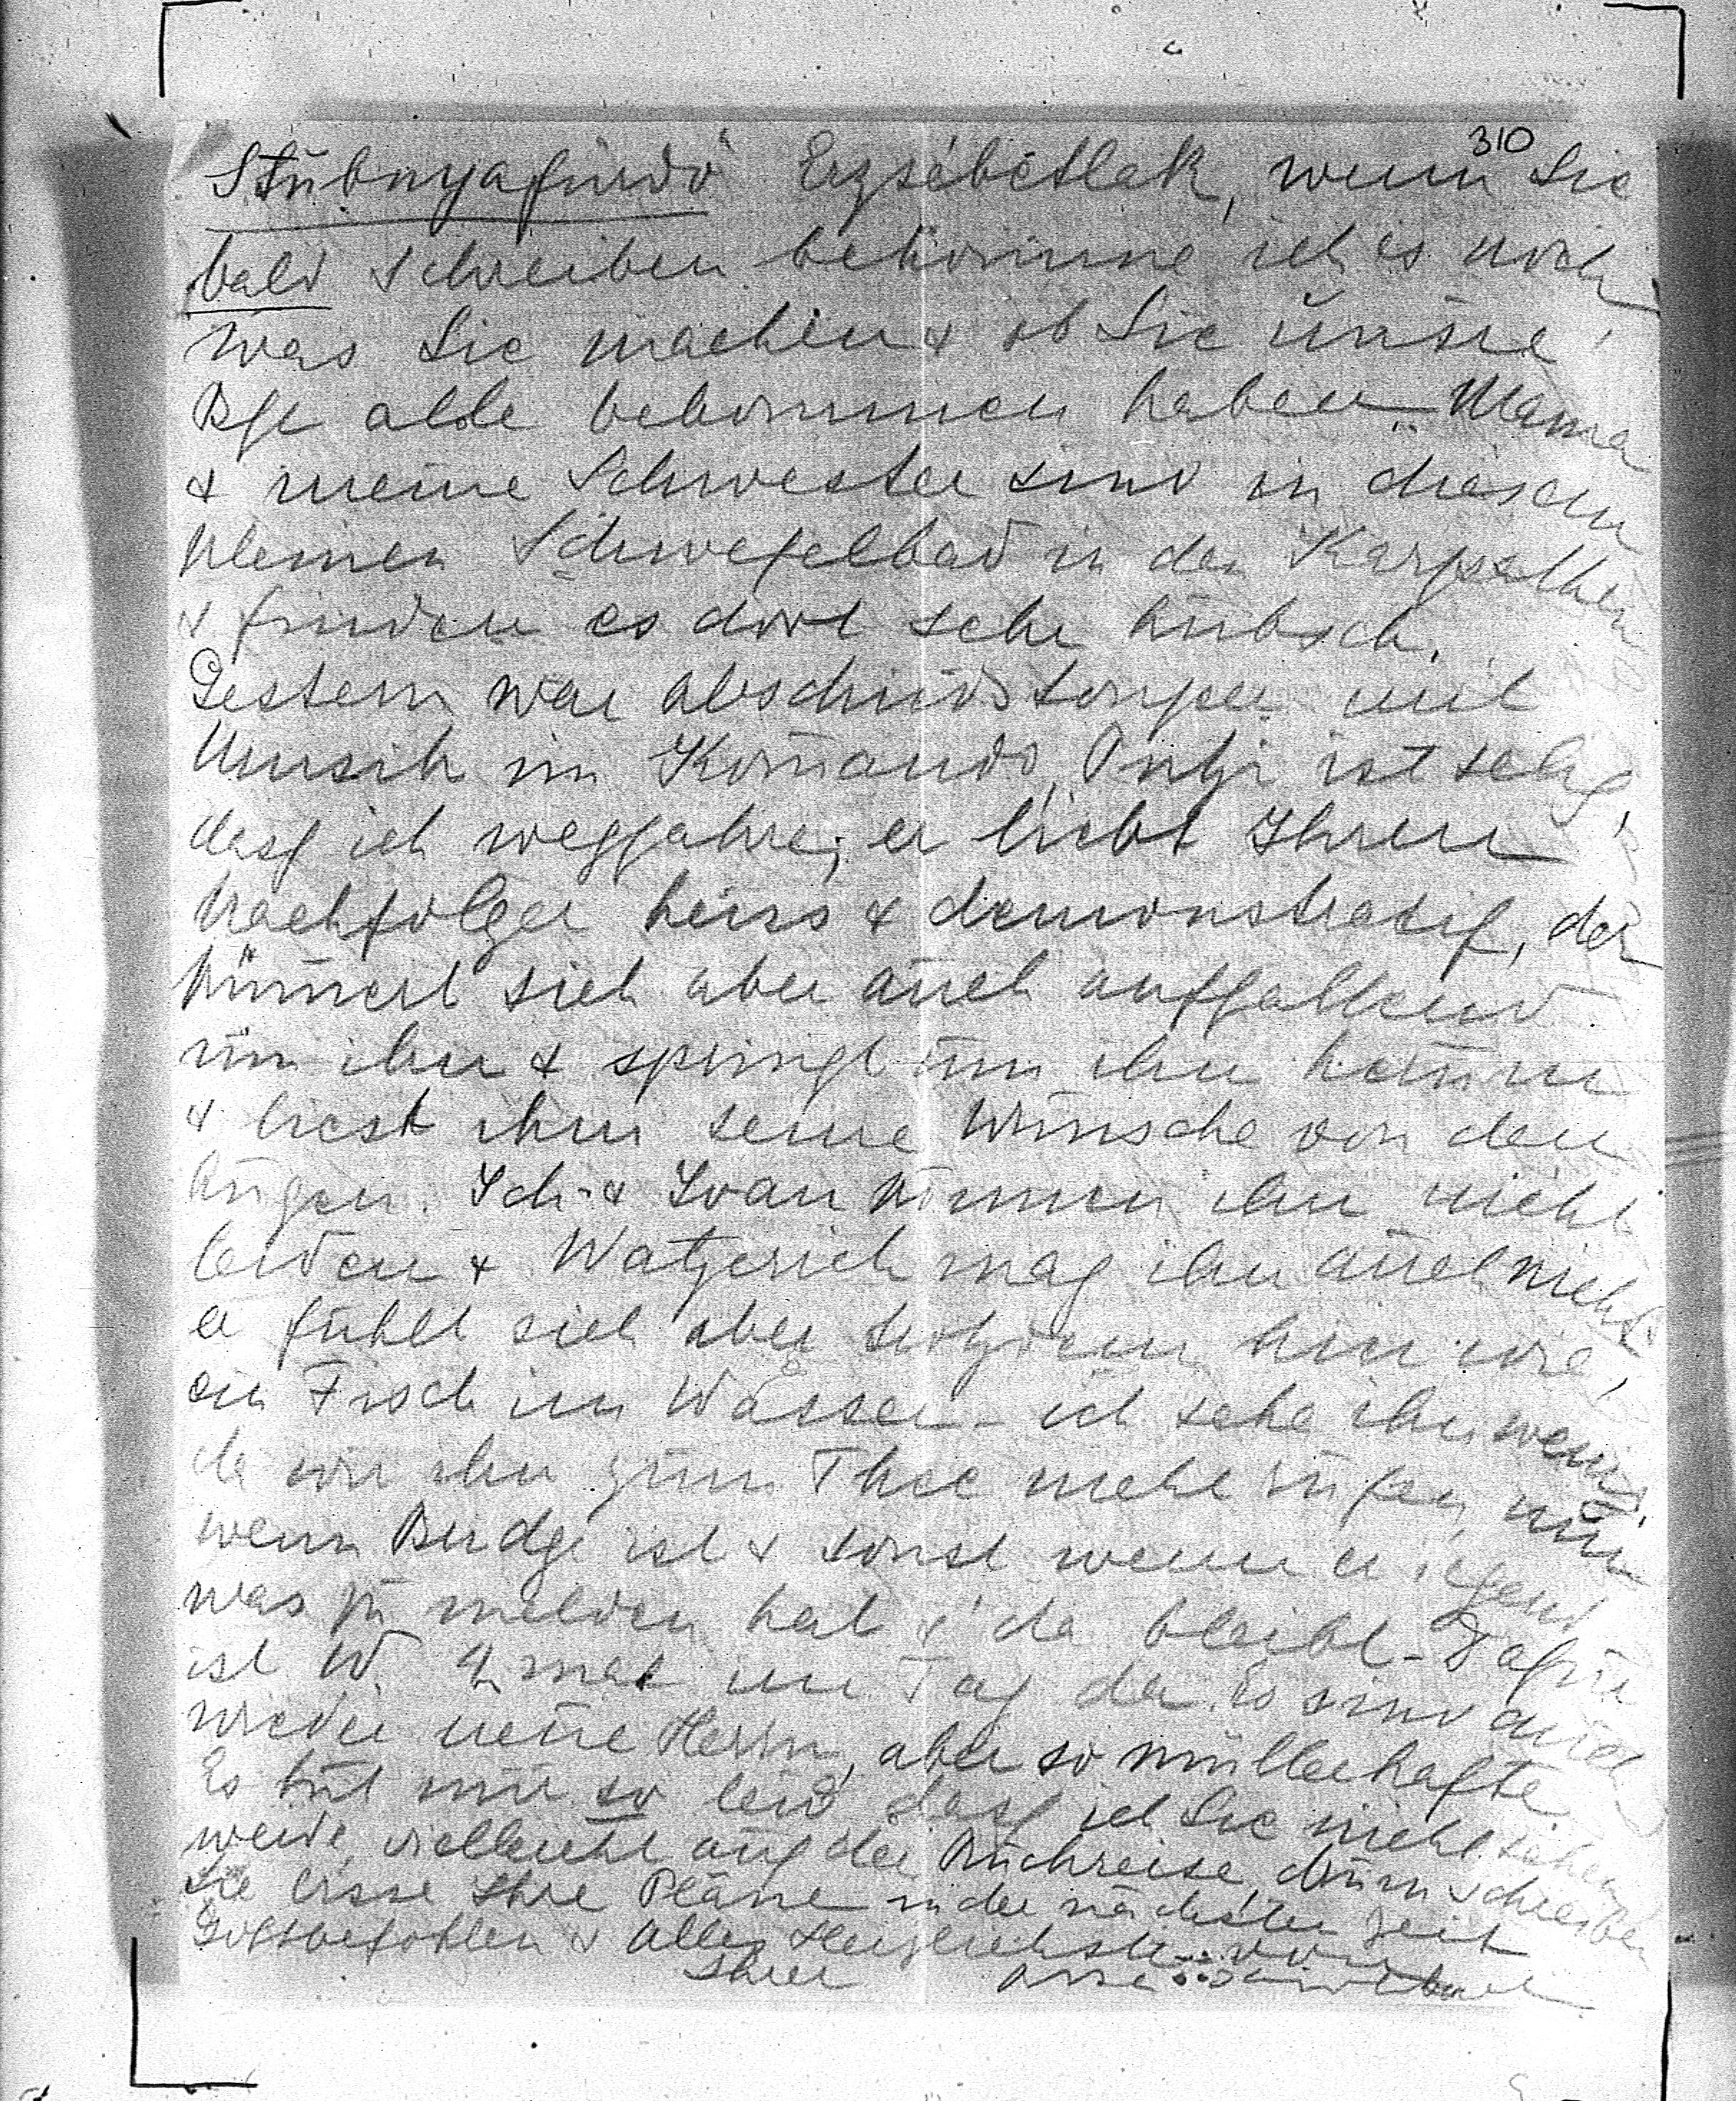 310
Stubnyafürdö Erzsébetlak, wenn Sie
bald schreiben bekomme ich es noch,
was Sie machen & ob Sie unsre
Bfe alle bekommen haben. Mama
& meine Schwester sind in diesem
kleinen Schwefelbad in den Karpathen
& finden es dort sehr hübsch.
Gestern war Abschiedssouper mit
Musik im Komando, ist selig,
dass ich wegfahre; er liebt Ihren
Nachfolger heiss & demonstratif, der
kümert sich aber auch auffallend
um ihn & springt um ihn herum
& liest ihm seine Wünsche von den
Augen. Ich & Ivan können ihn nicht
leiden & mag ihn auch nicht
er fühlt sich aber trotzdem hier wie
ein Fisch im Wasser – ich sehe ihn wenig,
da wir ihn zum Thee nicht rufen, nur
wenn Bridge ist & sonst wenn er irgend
was zu melden hat & da bleibt – Dafür
ist W. mal im Tag da. Es sind auch
wieder neue Herrn, aber so müllerhafte
Es tut mir so leid dass ich Sie nicht sehen
werde, vielleicht auf der Rückreise, drum schreiben
Sie bisse Ihre Pläne in der nächsten Zeit
Gottbefohlen & alles Herzlichste von
Ihrer